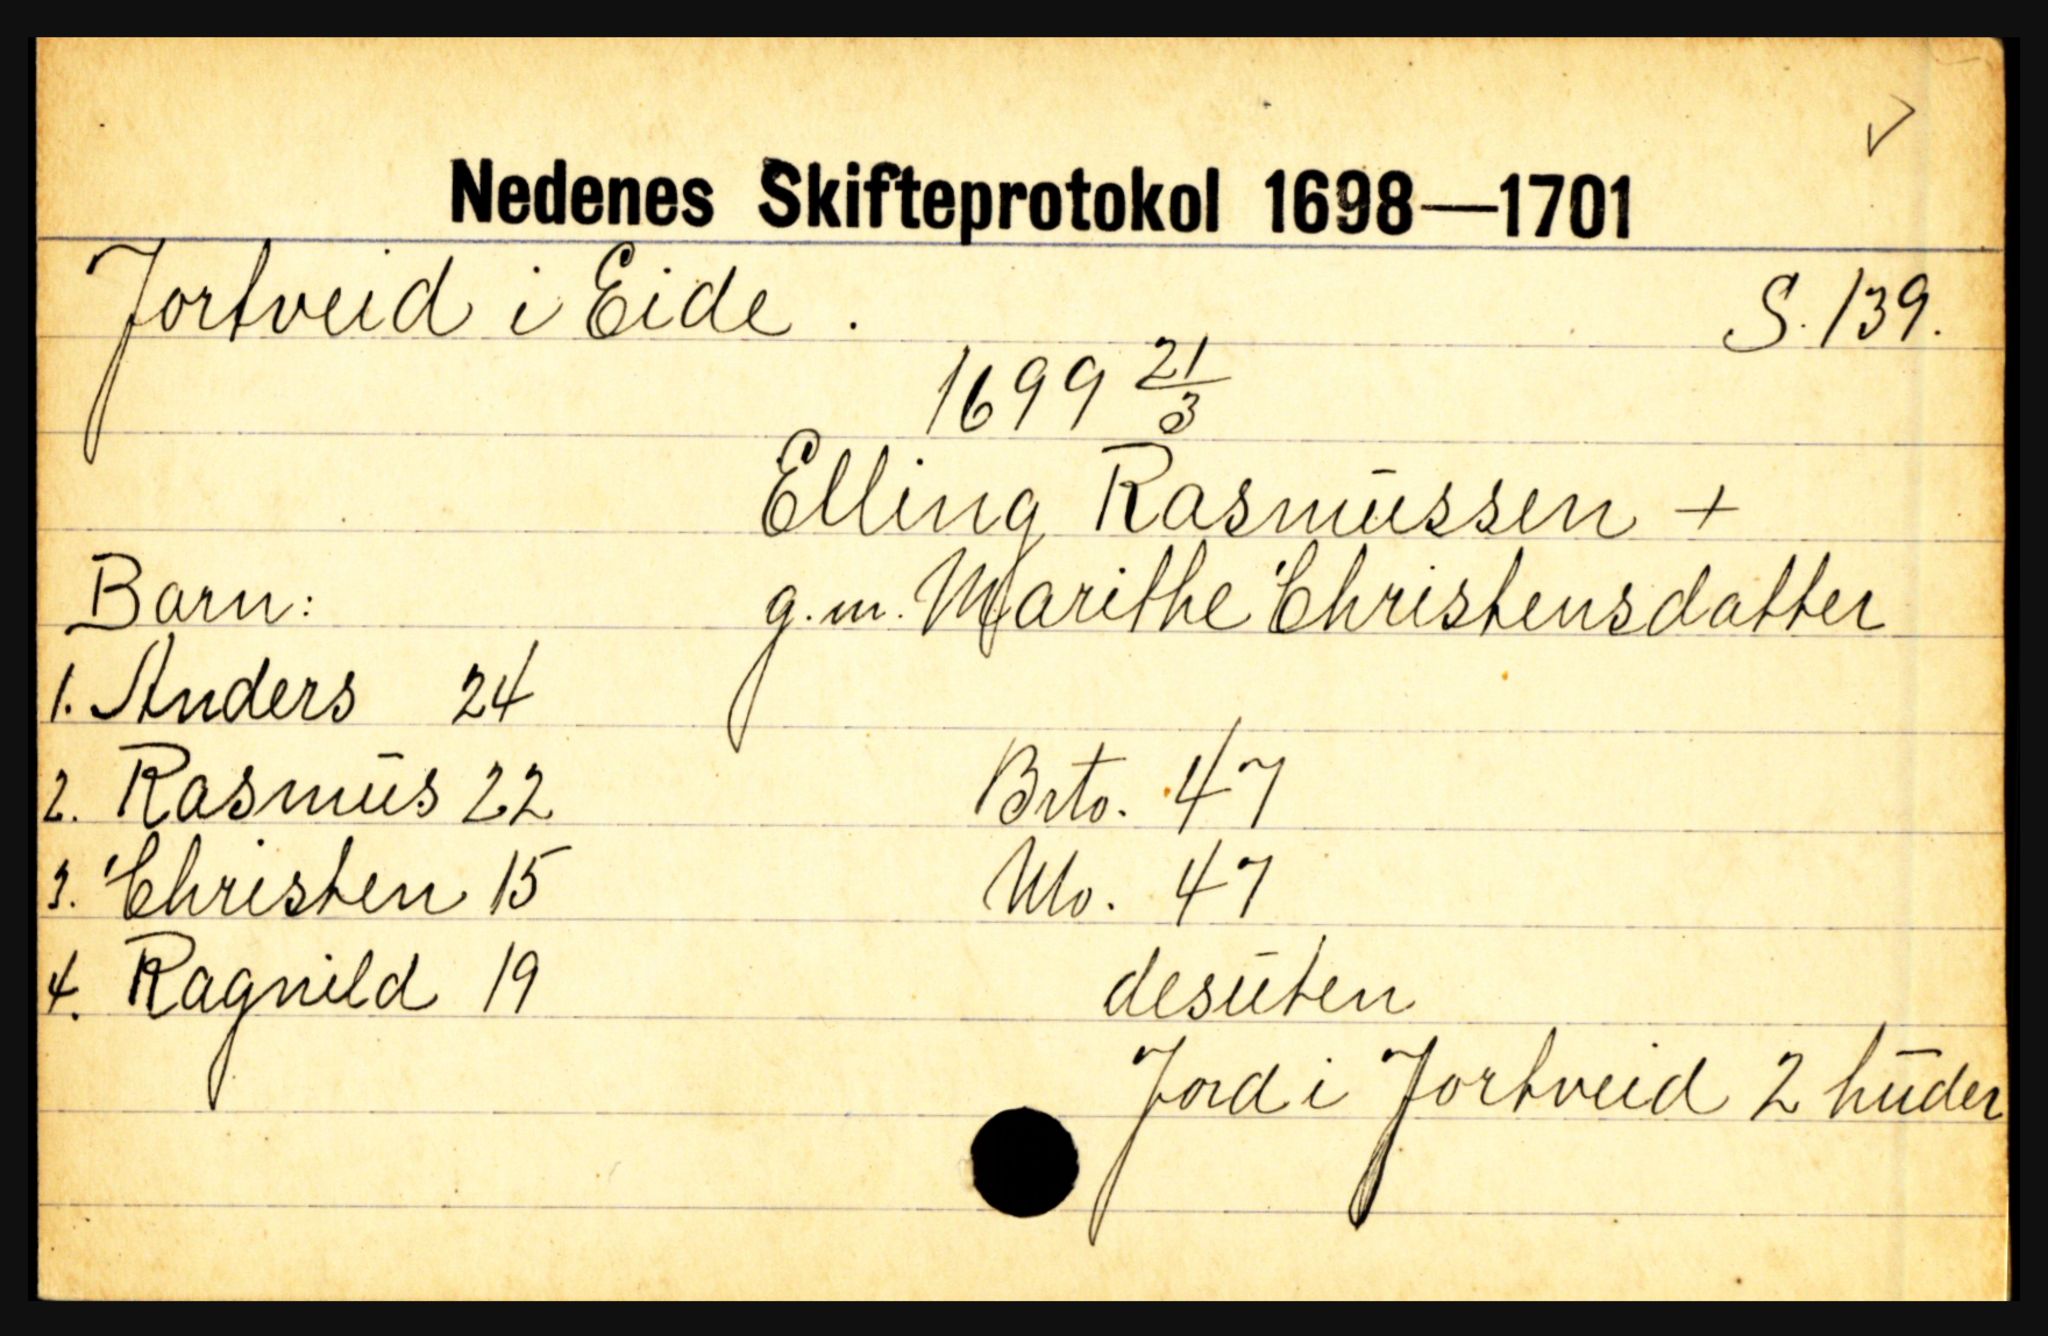 Nedenes Skifteprotokol 1698—1701
Jortveid i Eide. S. 139.
1699 21/3
Elling Rasmussen +
Barn: g.m. Marithe Christensdatter
1. Anders 24
2. Rasmus 22 Brto. 47
3. Christen 15 Nto. 47
4. Ragnild 19 desuten
Jord i Jortveid 2 huder